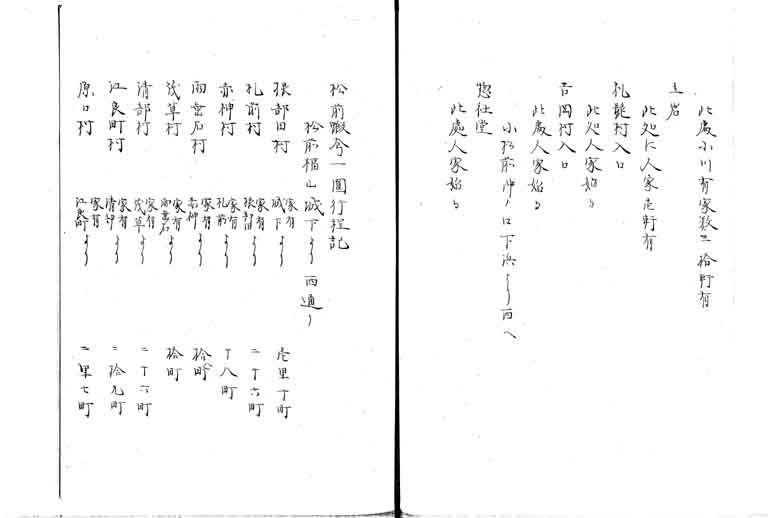 此處小川有家数三拾軒有
立岩
此処ニ人家疋軒有
札髭村入口
此処人家始る
吉岡村入口
此處人家始る
小松前沖ノ口下浜より西へ
惣社堂
此處人家始る
松前蝦夷一圓行程記
松前福山城下より西通り
根部田村 家有 城下より 壱里丁町
札前村 家有 根部田より 二十六町
赤神村 家有 札前より 十八町
雨垂石村 家有 赤神より 拾町
茂草村 家有 雨垂石より 拾町
清部村 家有 茂草より 二十六町
江良町村 家有 清部より 二拾九町
原口村 家有 江良町より 二里七町